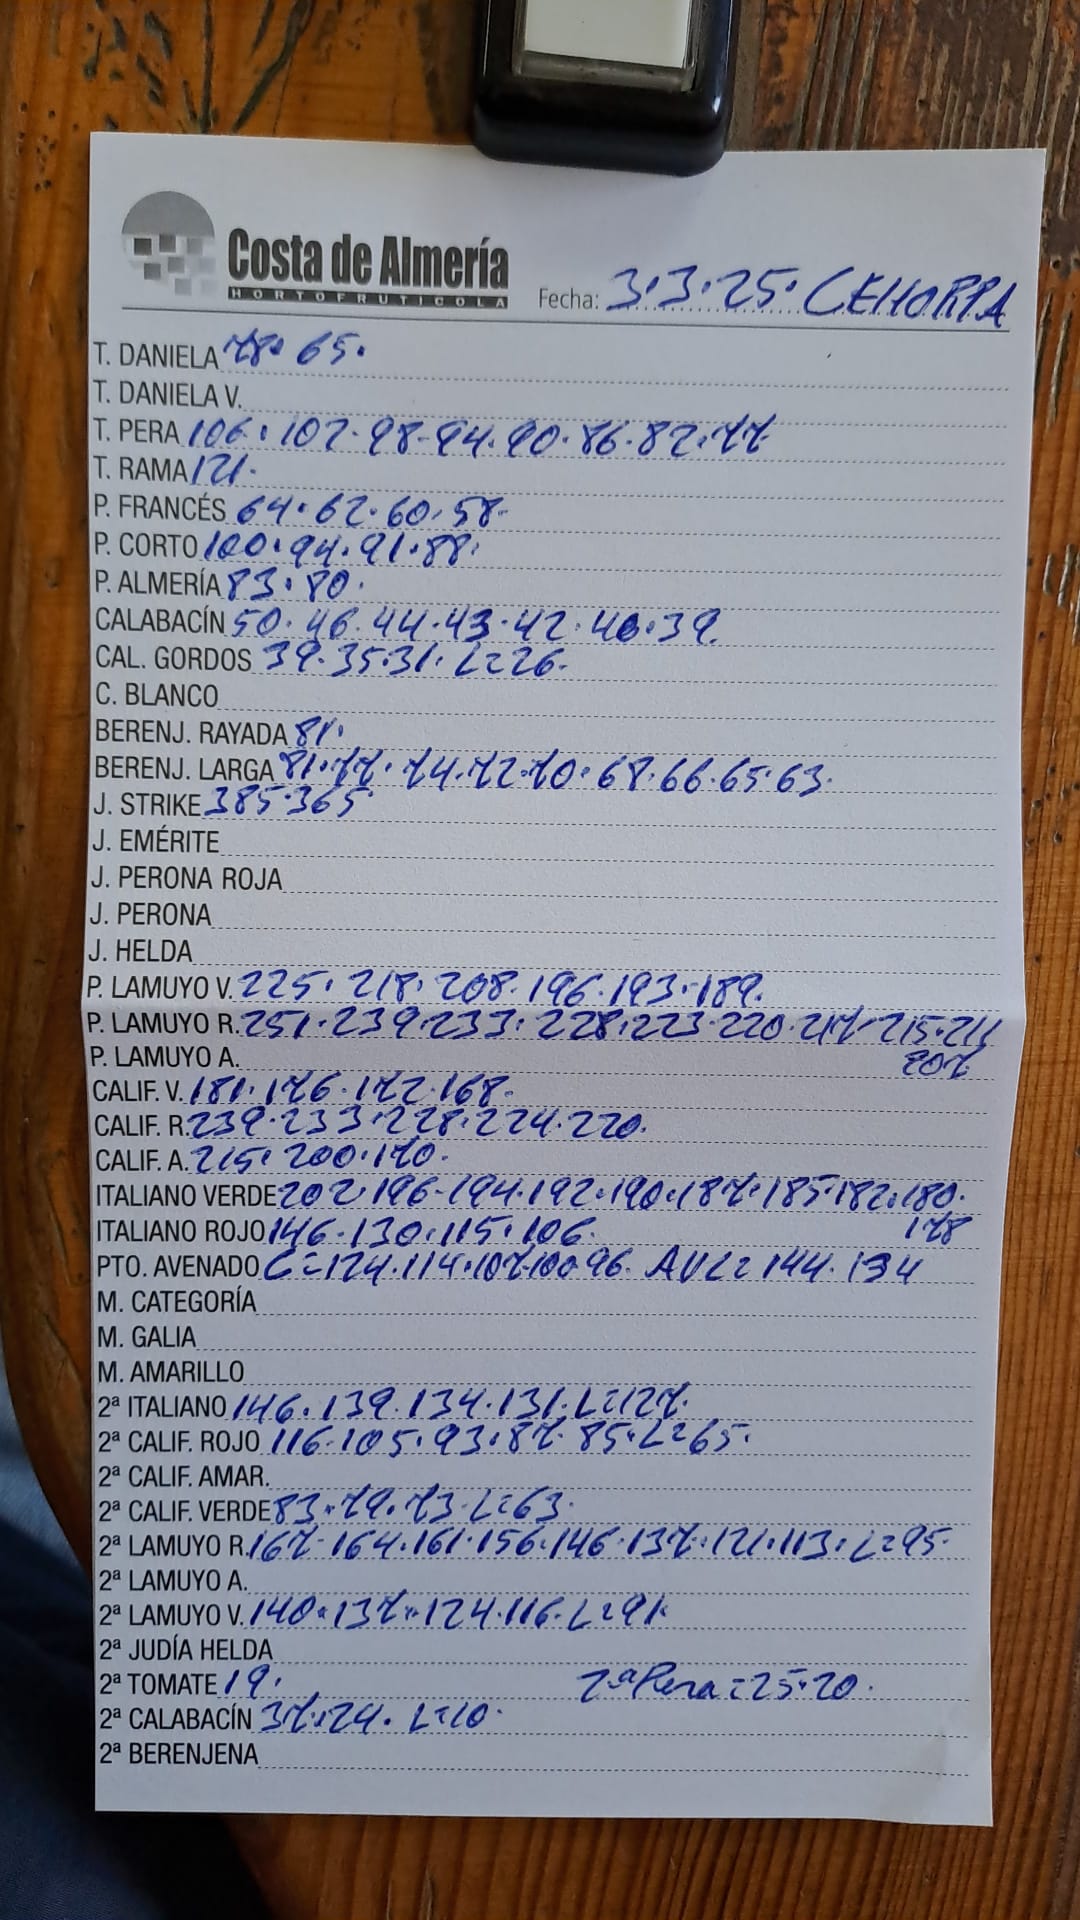 Costa de Almería
HORTOFRUTICOLA
Fecha: 3.3.25. CEHORPA
T. DANIELA 78. 65.
T. DANIELA V.
T. PERA 106. 102. 98. 94. 90. 86. 82. 77.
T. RAMA 121.
P. FRANCÉS 64. 62. 60. 58.
P. CORTO 100. 94. 91. 88.
P. ALMERÍA 83. 80.
CALABACÍN 50. 46. 44. 43. 42. 40. 39.
CAL. GORDOS 39. 35. 31. L=26.
C. BLANCO
BERENJ. RAYADA 81.
BERENJ. LARGA 81. 77. 74. 72. 70. 68. 66. 65. 63.
J. STRIKE 385. 365
J. EMÉRITE
J. PERONA ROJA
J. PERONA
J. HELDA
P. LAMUYO V. 225. 218. 208. 196. 193. 189.
P. LAMUYO R. 251. 239. 233. 228. 223. 220. 217. 215. 211
P. LAMUYO A. 207.
CALIF. V. 181. 176. 172. 168.
CALIF. R. 239. 233. 228. 224. 220.
CALIF. A. 215. 200. 170.
ITALIANO VERDE 202. 196. 194. 192. 190. 187. 185. 182. 180.
ITALIANO ROJO 146. 130. 115. 106. 178
PTO. AVENADO C=124. 114. 107. 100 96. AVL= 144. 134
M. CATEGORÍA
M. GALIA
M. AMARILLO
2ª ITALIANO 146. 139. 134. 131. L=127.
2ª CALIF. ROJO 116. 105. 93. 87. 85. L=65.
2ª CALIF. AMAR.
2ª CALIF. VERDE 83. 79. 73. L=63.
2ª LAMUYO R. 167. 164. 161. 156. 146. 137. 121. 113. L=95.
2ª LAMUYO A.
2ª LAMUYO V. 140. 137. 124. 116. L=91.
2ª JUDÍA HELDA
2ª TOMATE 19. 2ª Pera = 25. 20.
2ª CALABACÍN 37. 24. L=10.
2ª BERENJENA